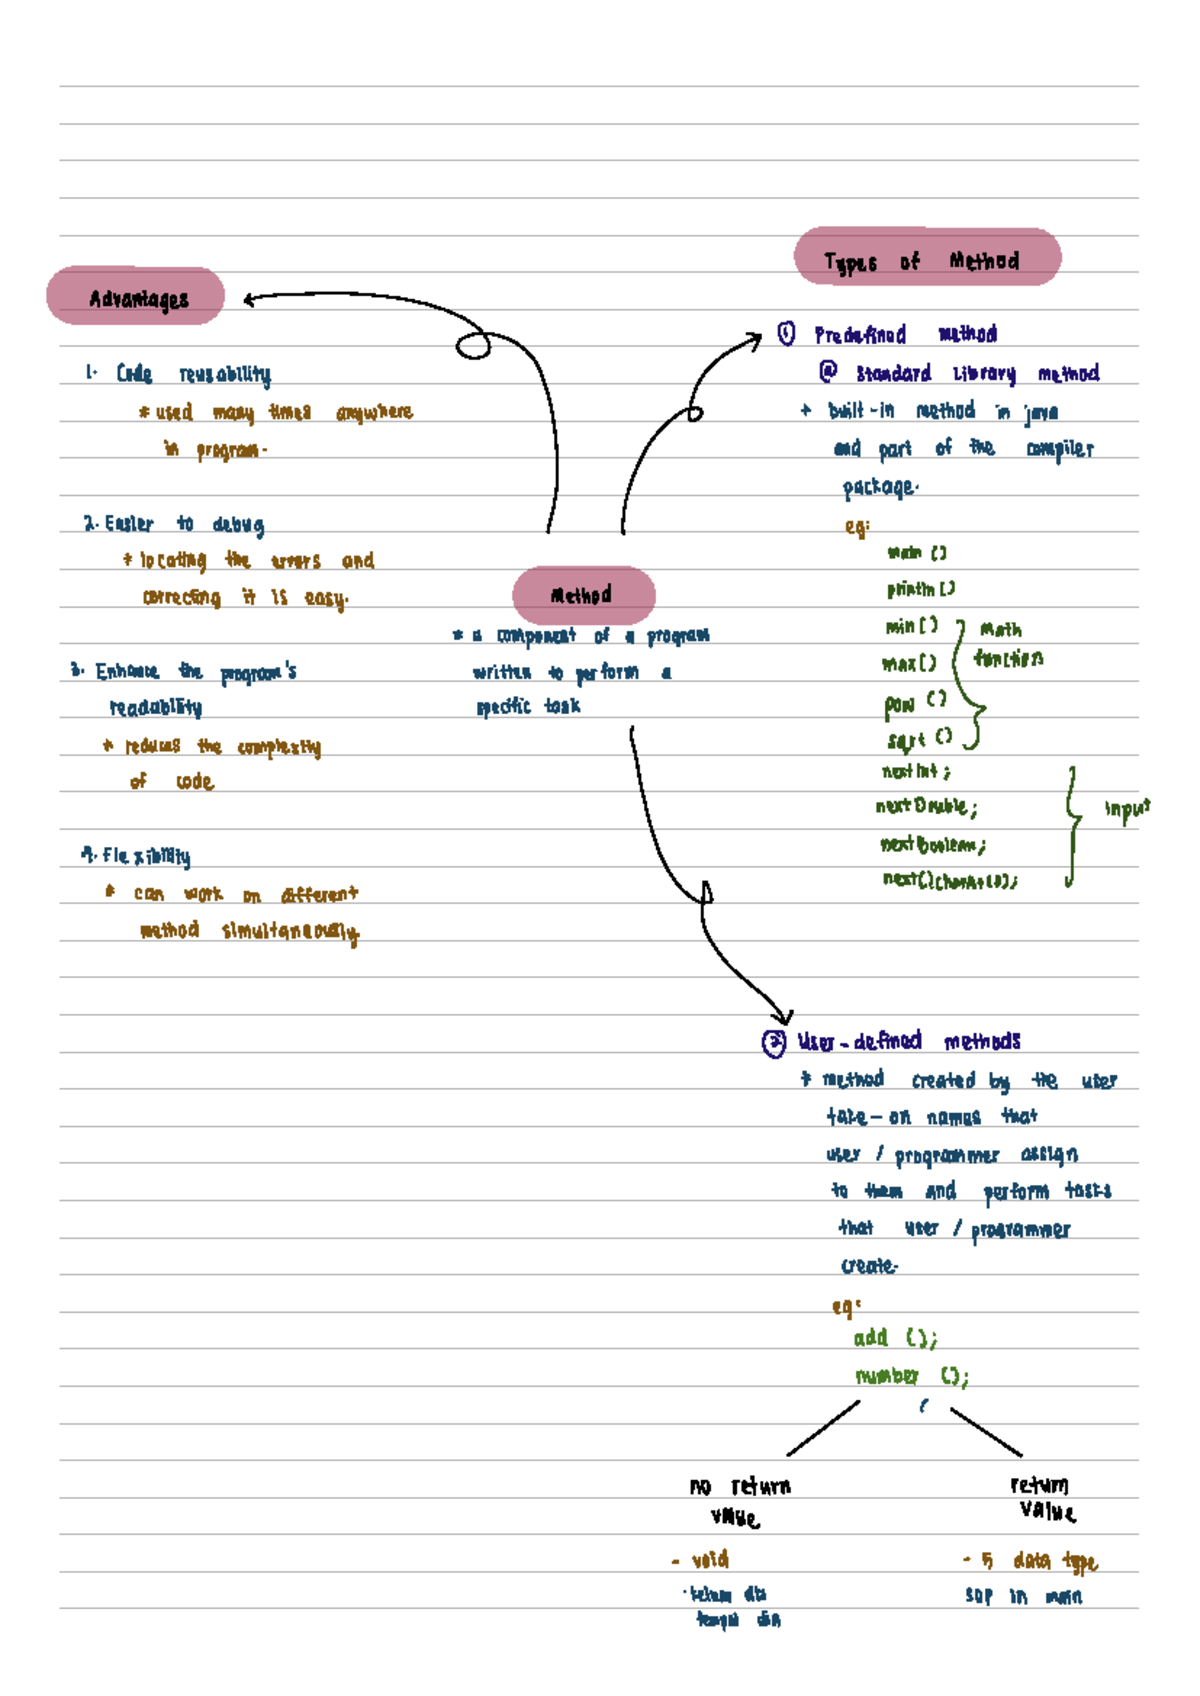 Advantages
1. Code reusability
* used many times anywhere
in program.
2. Easier to debug
* locating the errors and
correcting it is easy.
3. Enhance the program's
readability
* reduces the complexity
of code
4. Flexibility
* can work on different
method simultaneously
Method
* a component of a program
written to perform a
specific task
Types of Method
① Predefined method
@ Standard Library method
* built-in method in java
and part of the compiler
package.
eg:
main ()
println ()
min ()
max ()
pow ()
sqrt ()
Math
function
nextInt ;
nextDouble ;
nextBoolean ;
next().charAt(0);
input
② User-defined methods
* method created by the user
take-on names that
user / programmer assign
to them and perform tasks
that user / programmer
create.
eg:
add ();
number ();
no return
value
- void
tempat
return
value
- 5 data type
SOP in main